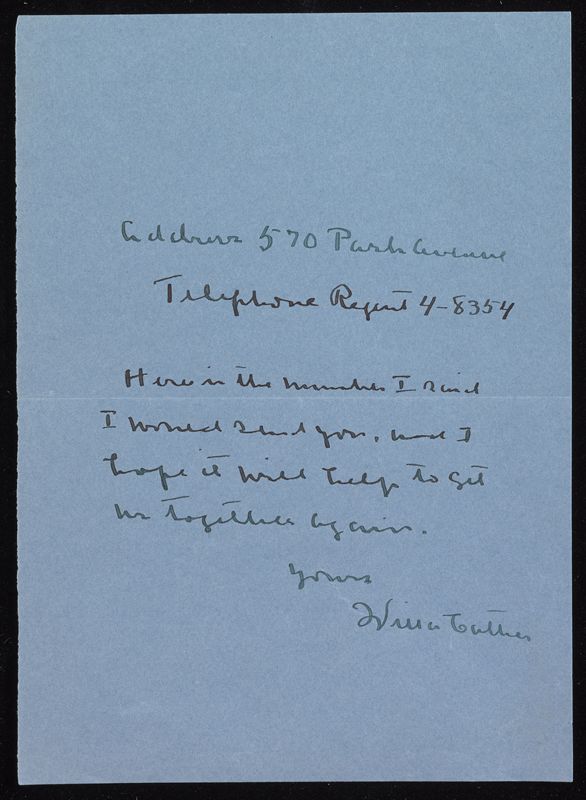 Address 570 Park Avenue
Telephone Regent 4-8354
Here is the number I said
I would send you, and I
hope it will help to get
us together again.
Yours
Willa Cather